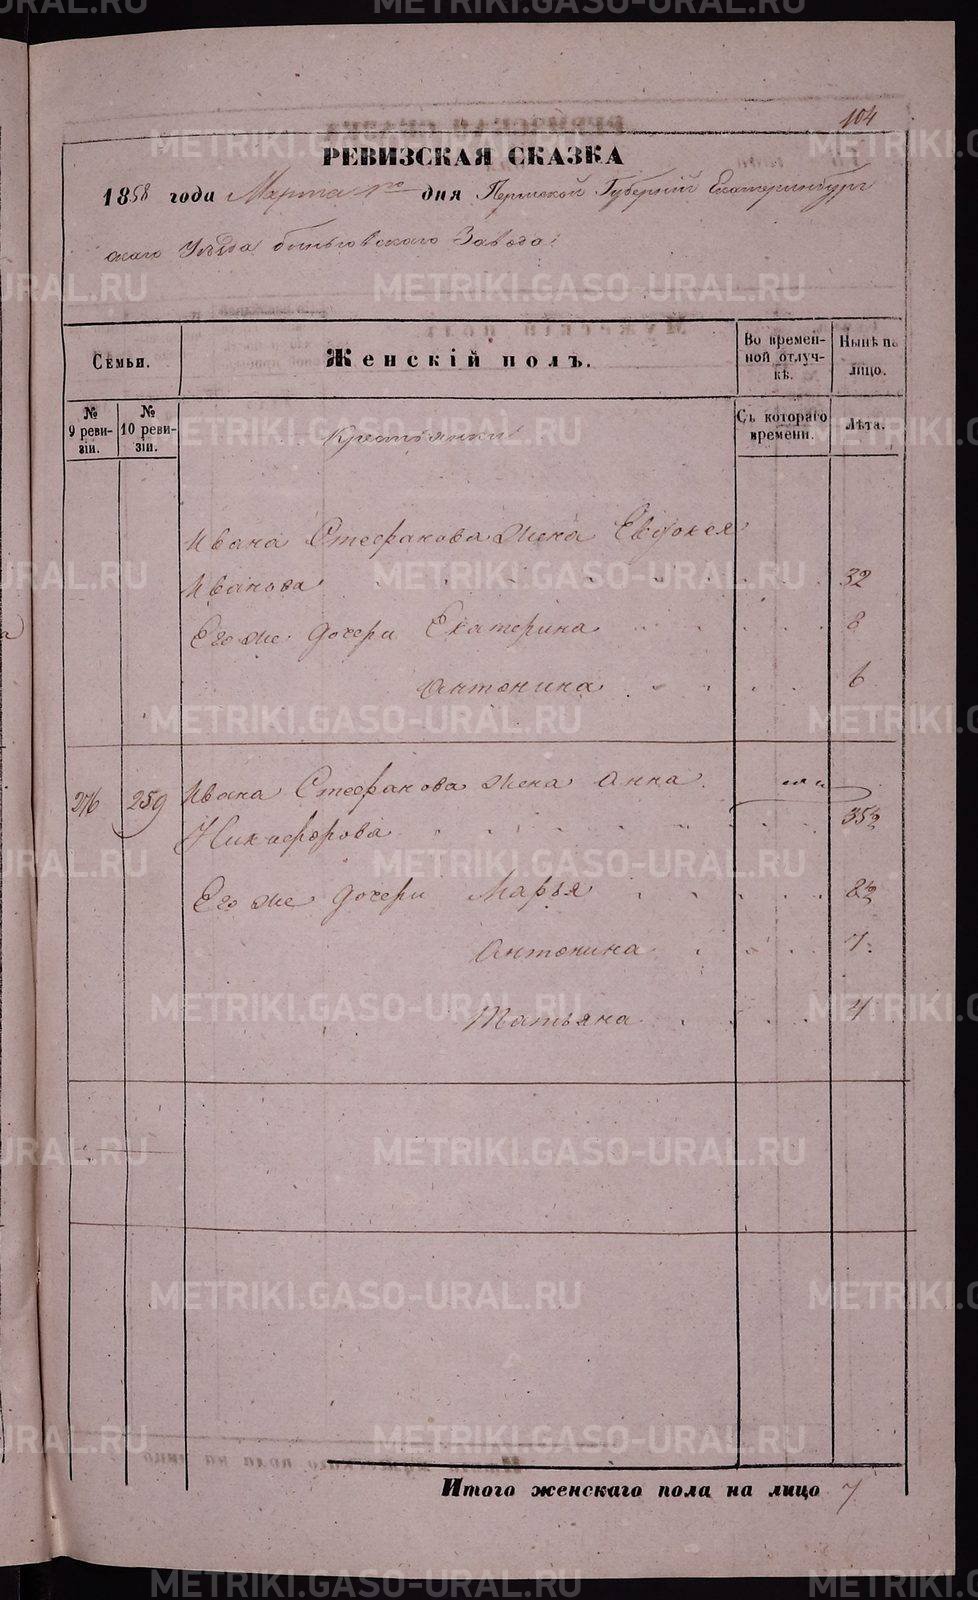 104
РЕВИЗСКАЯ СКАЗКА
1858 года Марта 1го дня Пермской Губерніи Екатеринбург
скаго Уѣзда Быньговскаго Завода
Семьи.
Женскій полъ.
Во времен-
ной отлуч-
кѣ.
Нынѣ на
лицо.
№
9 реви-
зіи.
№
10 реви-
зіи.
Крестьянки
Съ котораго
времени.
Лѣта.
Ивана Стефанова жена Евдокея
Иванова 32
Его же дочери Екатерина 8
Антонина 6
276 259 Ивана Стефанова жена Анна
Никифорова 35½
Его же дочери Марья 8½
Антонина 7
Татьяна 4
Итого женскаго пола на лицо 7
METRIKI.GASO-URAL.RU